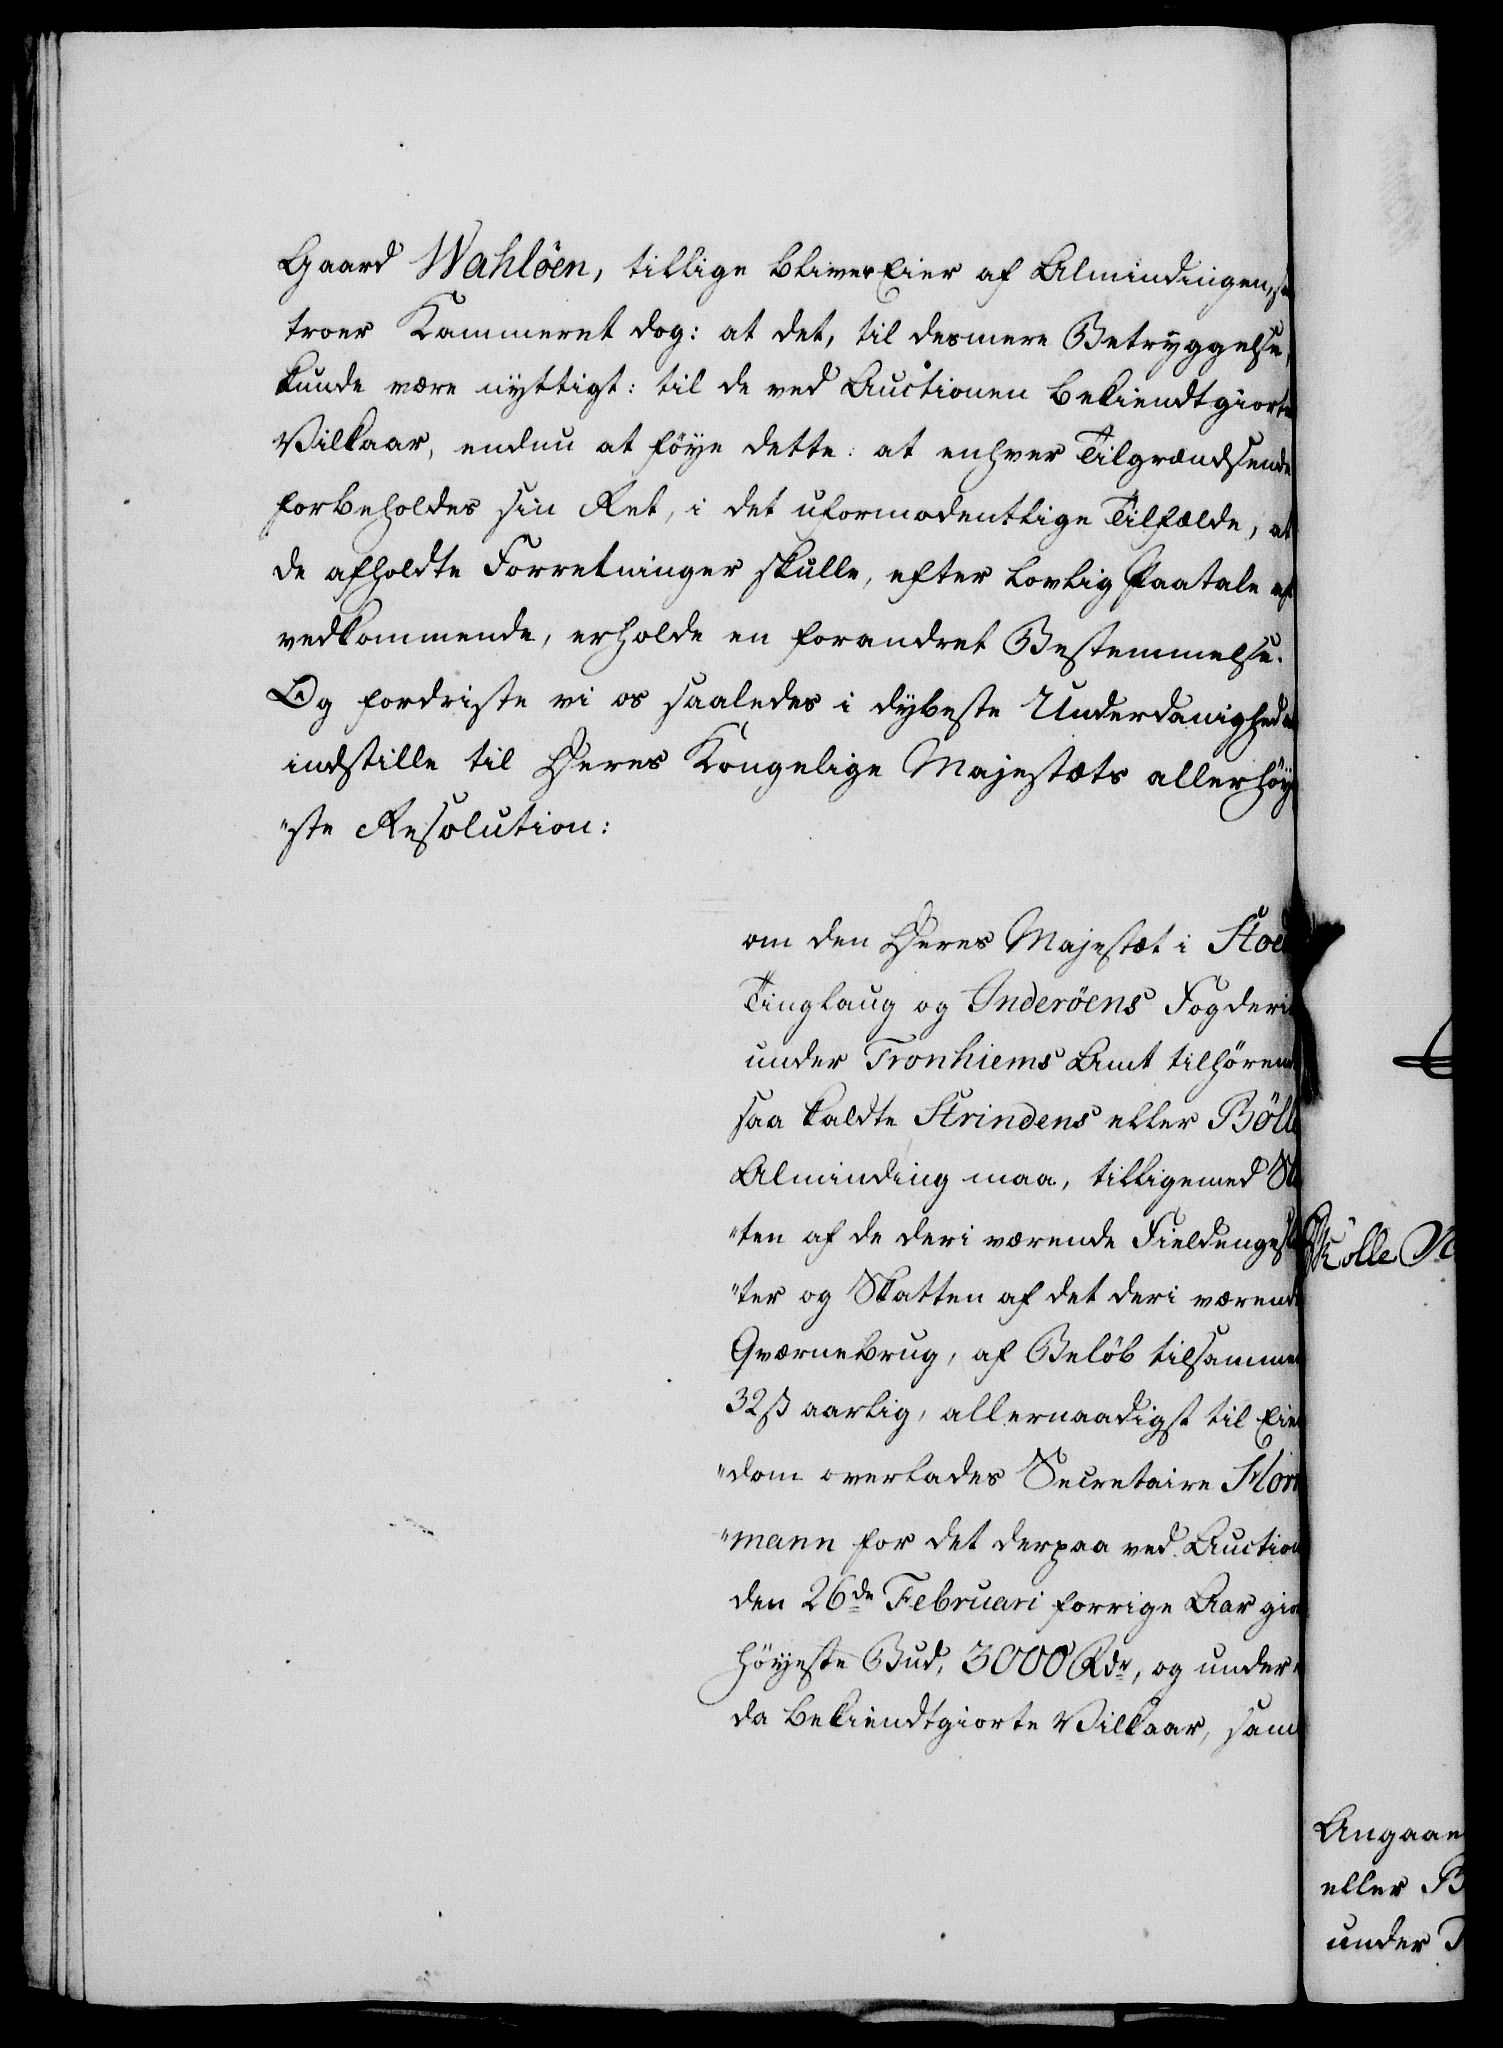 Gaard Wahlöen, tillige bliver Eier af Almindingen, 
troer Kammeret dog: at det, til desmere Betryggelse,
kunde være nyttigt: til de ved Auctionen bekiendtgiorte
Vilkaar, endnu at föye dette: at enhver Tilgrændsende
forbeholdes sin Ret, i det uformodentlige Tilfælde, at
de afholdte Forretninger skulle, efter lovlig Paatale af
vedkommende, erholde en forandret Bestemmelse.
Og fordriste vi os saaledes i dybeste Underdanighed
indstille til Deres Kongelige Majestæts allerhöy
"ste Resolution:
om den Deres Majestæt i
Tinglaug og Inderöens Fogderi
under Tronhiems Amt tilhören
saa kaldte Strindens eller Bölle
Alminding maa, tilligemed
"ten af de deri værende Fieldenge
"ter og Skatten af det deri værende
Qværnebrug, af Belöb tilsammen
32ß aarlig, allernaadigst til Eien
"dom overlades Secretaire Horn
"mann for det derpaa ved Auction
den 26de Februari forrige Aar gior
höyeste Bud, 3000 Rdr, og under
da bekiendtgiorte Vilkaar, sam
Angaaen
eller B
under T